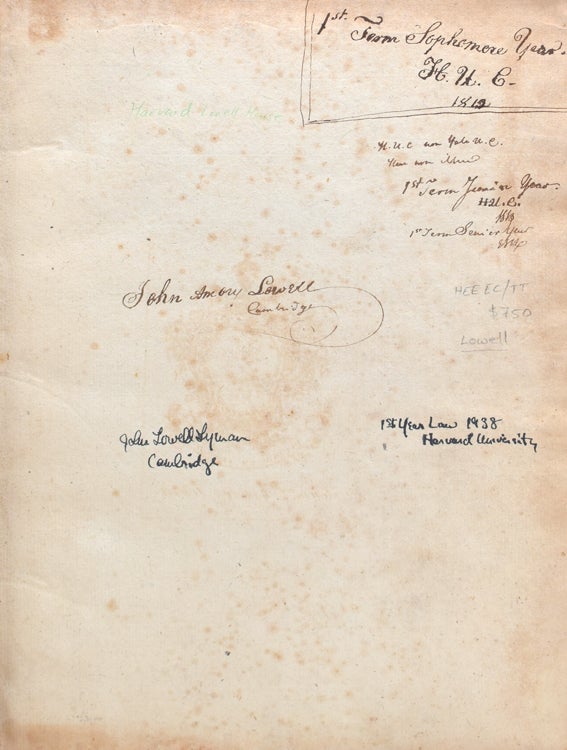 1st.
Term Sophomore Year.
H. U. C.
1812
Harvard Lowell House
H. U. C non Yale U. C.
1st Term Junior Year.
H.U.C.
1813
1st Term Senior Year
John Amory Lowell
Cambridge
HEEEC/TT
$750
Lowell
John Lowell Lyman
Cambridge
1st Year Law 1938
Harvard University